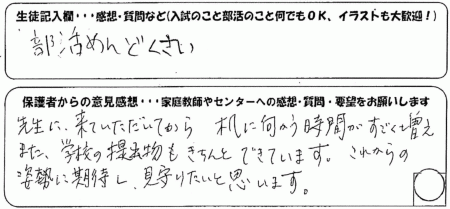 生徒記入欄・・・感想・質問など(入試のこと部活のこと何でもOK、イラストも大歓迎!)
部活めんどくさい
保護者からの意見感想・・・家庭教師やセンターへの感想・質問・要望をお願いします
先生に、来ていただいてから 机に向かう時間がすごく増え
また、学校の提出物もきちんとできています。これからの
姿勢に期待し、見守りたいと思います。